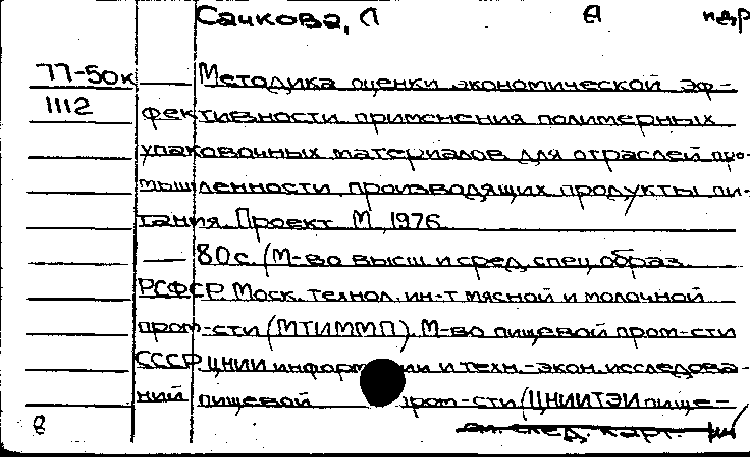 Сачкова, Л А и др
77-50к — Методика оценки экономической эф-
1112 фективности применения полимерных
упаковочных материалов для отраслей про-
мышленности, производящих продукты пи-
тания. Проект. М., 1976.
— 80 с. (М-во высш и сред. спец. образ.
РСФСР. Моск. технол. ин-т мясной и молочной
пром-сти (МТИММП). М-во пищевой пром-сти
СССР. ЦНИИ информ ии и техн.-экон. исследова-
ний пищевой пром-сти (ЦНИИТЭИпище-
8 см. след. карт.